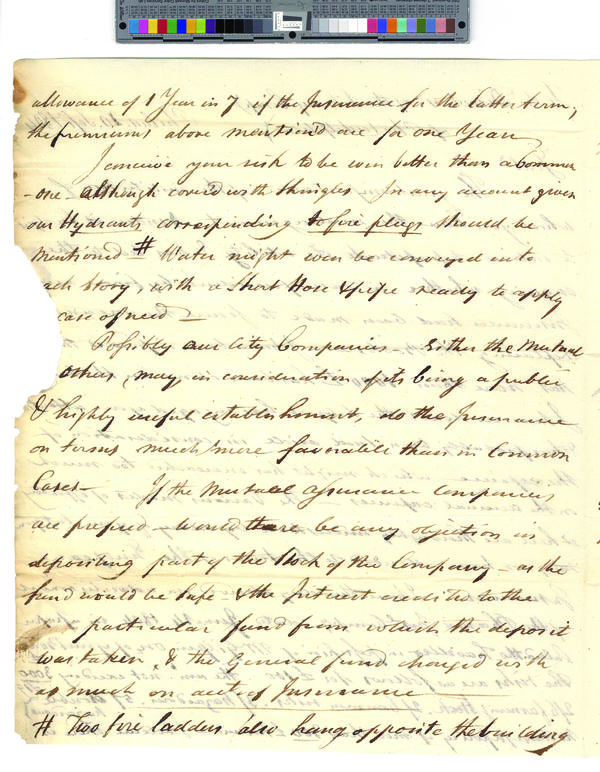 allowance of 1 Year in 7 if the Insurance for the latter term,
the premiums above mention'd are for one Year
I conceive your risk to be even better than a common
- one - although cover'd with Shingles - In any account given
our Hydrants corresponding to fire plugs should be
mentioned # Water might even be conveyed into
ach Story, with a Short Hose & pipe ready to apply
case of need -
Possibly our City Companies - Either the Mutual
others, may, in consideration of its being a public
& highly useful establishment, do the Insurance
on terms much more favorable than in Common
Cases - If the Mutual Assurance Companies
are prefer'd - would there be any objection in
depositing part of the Stock of the Company - as the
fund would be Safe & the Interest credited to the
particular fund from which the deposit
was taken & the General fund charged with
as much on acct of Insurance
# Two fire ladders also hang opposite the building